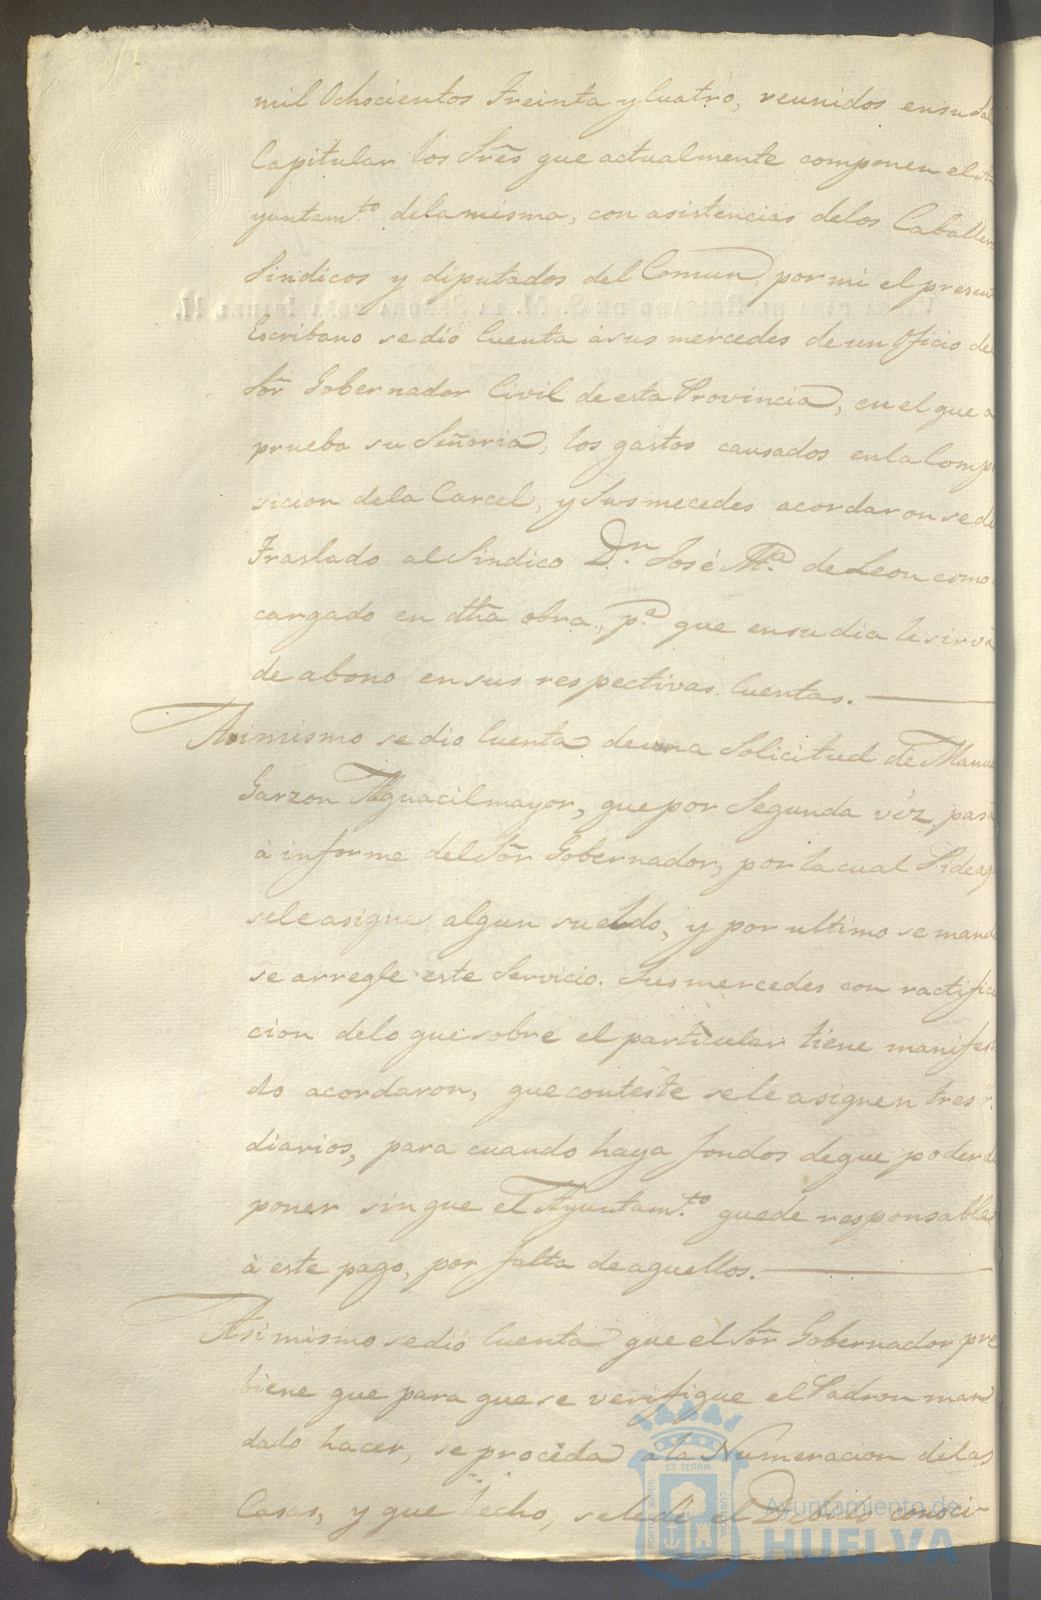 mil Ochocientos Treinta y Cuatro, reunidos en su Sal
Capitular los Sres que actualmente componen el A
yuntam.to dela misma, con asistencias delos Caballer
Sindicos y diputados del Comun, por mi el present
Escribano se dió Cuenta á sus mercedes de un Oficio de
Sõr Gobernador Civil de esta Provincia, en el que a
prueba su Señoria, los gastos causados en la Comp
sicion dela Carcel, y Sus mecedes acordaron se dé
Traslado al Sindico D.n José M.a de Leon como
cargado en dha obra, p.a que en su dia le sirva
de abono en sus respectivas Cuentas.
Asimismo se dio Cuenta de una Solicitud de Manue
Garzon Alguacil mayor, que por Segunda véz, pasa
á informe del Sõr Gobernador, por la cual
sele asigne algun sueldo, y por ultimo se manda
se arregle este Servicio. Sus mercedes con ractifica
cion delo que sobre el particular tiene manifes
do acordaron, que conteste se le asignen tres r.
diarios, para cuando haya fondos de que poder di
poner sin que el Ayuntam.to quede responsable
á este pago, por falta de aquellos.
Asimismo se dió Cuenta que el Sõr Gobernador pre
biene que para que se verifique el Padron man
dado hacer, se procéda a la Numeracion delas
Casas, y que hecho, se le dé el Debido conoci-
ET TERRÆ
PORTUS MARIS
CUSTODIA
Ayuntamiento de
HUELVA